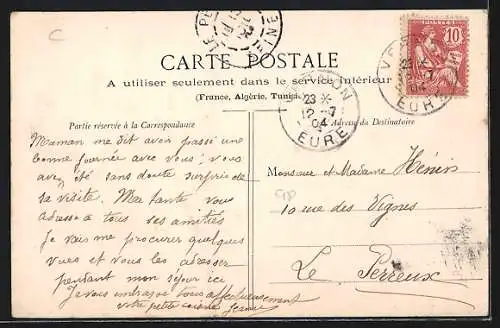 C
LE PE
CARTE POSTALE
A utiliser seulement dans le service intérieur
(France, Algérie, Tunisie
10
VERNON
23
12 -7
04
EURE
23
-7
04
EURE
Partie réservée à la Correspondance
Adresse du Destinataire
Maman me dit avoir passé une
bonne journée avec vous; vous
avez été sans doute surprise de
sa visite. Ma tante vous
adresse à tous ses amitiés
Je vais me procurer quelques
vues et vous les adresser
pendant mon séjour ici
Je vous embrasse tous affectueusement
votre petite cousine Jeanne
Monsieur et Madame Hénin
10 rue des Vignes
Le Perreux